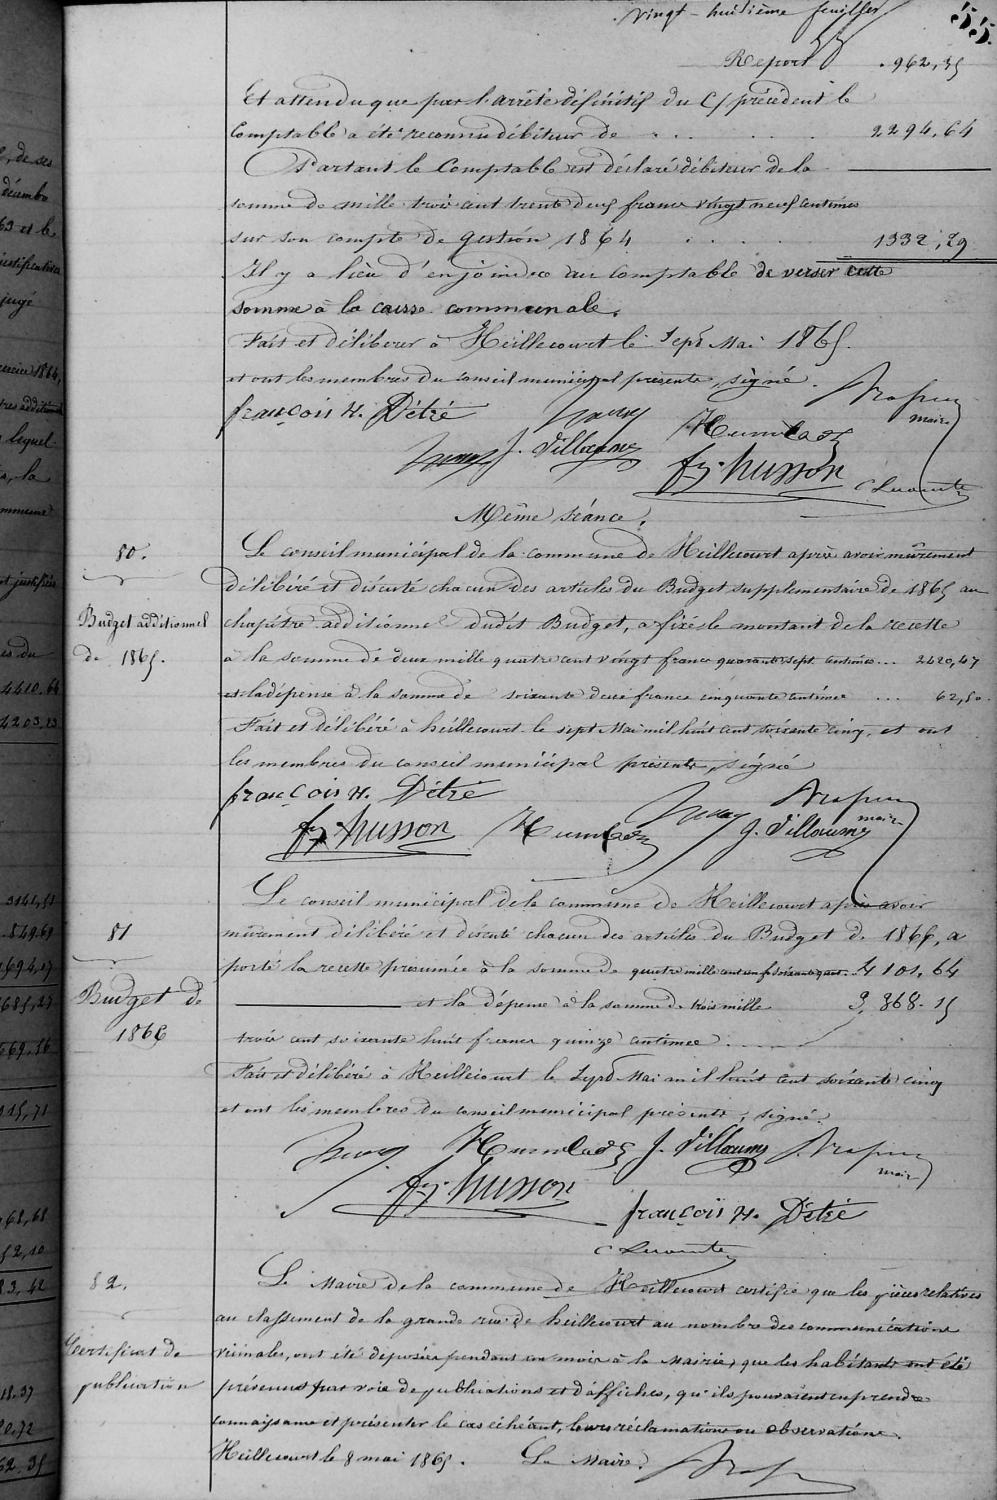 Vingt-huitième feuillet
55
Report . 962,35
Et attendu que par l'arrêté définitif du C/ précédent le
Comptable a été reconnu débiteur de . . . . 2294,64
Partant le Comptable est déclaré débiteur de la
somme de mille trois cent trente deux francs vingt neuf centimes
sur son compte de gestion 1864 . . . . 1332,29
Il y a lieu d'enjoindre au comptable de verser cette
somme à la caisse communale.
Fait et délibérer à Heillecourt le Sept Mai 1865.
et ont les membres du conseil municipal présents, signé.
françois N. Détré
maire
J. Villaume
fz. husson
C Lecomte
Même séance.
80.
Budget additionnel
de 1865.
Le conseil municipal de la commune de Heillecourt après avoir mûrement
délibéré et discuté chacun des articles du Budget supplémentaire de 1865 au
chapitre additionnel dudit Budget, a fixés le montant de la recette
à la somme de deux mille quatre cent vingt francs quarante sept centimes ... 2420,47
et la dépense à la somme de soixante deux francs cinquante centimes ... 62,50.
Fait et délibéré à heillecourt le sept Mai mil huit cent soixante cinq, et ont
les membres du conseil municipal présents, signé
françois N. Détré
maire
fz. husson
J. Villaume
81
Budget de
1866
Le conseil municipal de la commune de Heillecourt après avoir
mûrement délibéré et discuté chacun des articles du Budget de 1866, a
porté la recette présumée à la somme de quatre mille cent un f soixante quat. 4101,64
et la dépense à la somme de trois mille 3,368.15
trois cent soixante huit francs quinze centimes
Fait et délibéré à Heillecourt le Sept Mai mil huit cent soixante cinq
et ont les membres du conseil municipal présents, signé.
J. Villaume
maire
fz. husson
françois N. Détré
C Lecomte
82.
Certificat de
publication
Le Maire de la commune de Heillecourt certifie que les pièces relatives
au classement de la grande rue de heillecourt au nombre des communications
vicinales, ont été déposées pendant un mois à la Mairie, que les habitants ont été
prévenus par voie de publications et d'affiches, qu'ils pouvaient en prendre
connaissance et présenter le cas échéant, leurs réclamations ou observations.
Heillecourt le 8 mai 1865. Le Maire.